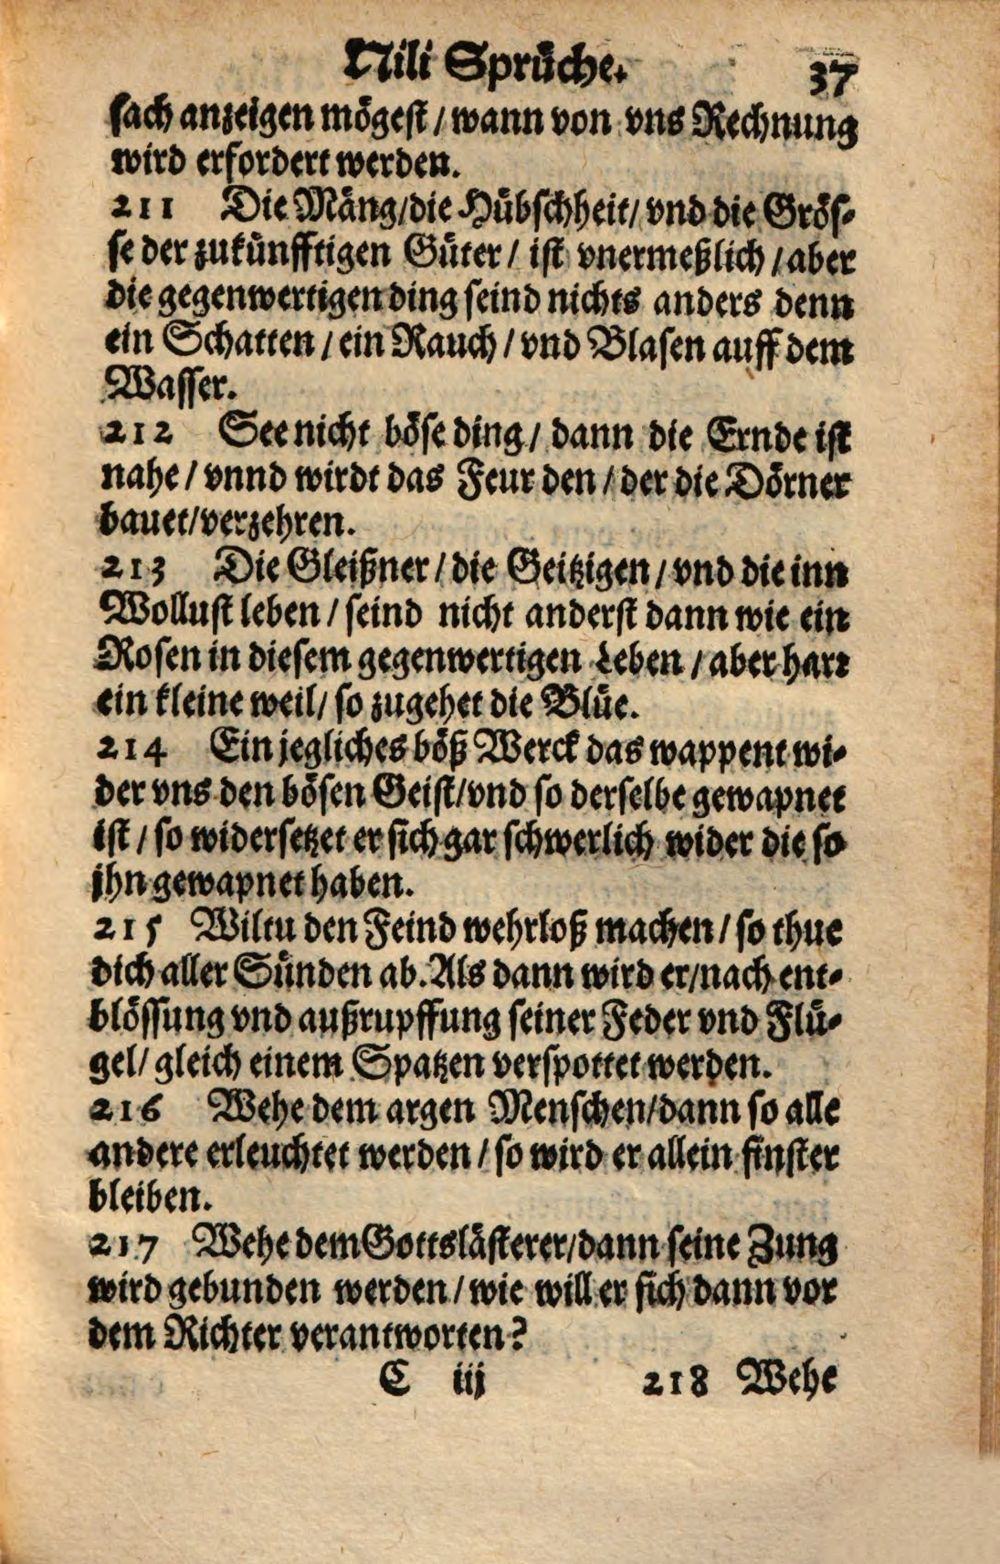 Nili Sprüche. 37
sach anzeigen mögest / wann von vns Rechnung
wird erfordert werden.
211 Die Mäng/die Hübschheit/ vnd die Grös-
se der zukünfftigen Güter / ist vnermeßlich / aber
die gegenwertigen ding seind nichts anders denn
ein Schatten / ein Rauch / vnd Blasen auff dem
Wasser.
212 See nicht böse ding / dann die Ernde ist
nahe / vnnd wirdt das Feur den / der die Dörner
bauet/verzehren.
213 Die Gleißner / die Geitzigen / vnd die inn
Wollust leben / seind nicht anderst dann wie ein
Rosen in diesem gegenwertigen Leben / aber harr
ein kleine weil/ so zugehet die Blüe.
214 Ein jegliches böß Werck das wappent wi-
der vns den bösen Geist/vnd so derselbe gewapnet
ist / so widersetzet er sich gar schwerlich wider die so
jhn gewapnet haben.
215 Wiltu den Feind wehrloß machen / so thue
dich aller Sünden ab. Als dann wird er/nach ent-
blössung vnd außrupffung seiner Feder vnd Flü-
gel/ gleich einem Spatzen verspottet werden.
216 Wehe dem argen Menschen/dann so alle
andere erleuchtet werden / so wird er allein finster
bleiben.
217 Wehe dem Gottslästerer/dann seine Zung
wird gebunden werden / wie will er sich dann vor
dem Richter verantworten?
C iij 218 Wehe